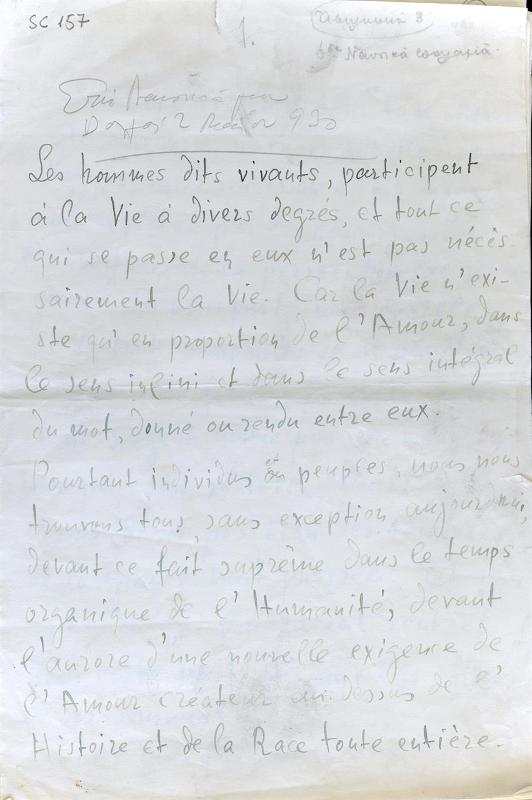 SC 157
1.
Les hommes dits vivants, participent
à la Vie à divers degrés, et tout ce
qui se passe en eux n'est pas nécès-
sairement la Vie. Car la Vie n'exi-
ste qu'en proportion de l'Amour, dans
le sens infini et dans le sens intégral
du mot, donné ou rendu entre eux.
Pourtant individus ou peuples, nous nous
trouvons tous, sans exception aujourd'hui,
devant ce fait suprême dans le temps
organique de l'Humanité, devant
l'aurore d'une nouvelle exigence de
l'Amour créateur au dessus de l'
Histoire et de la Race toute entière.